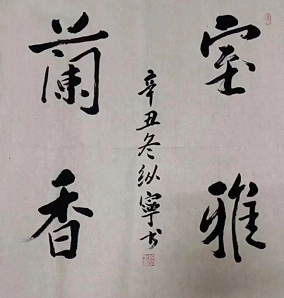 室雅
蘭香
辛丑冬纵寧书